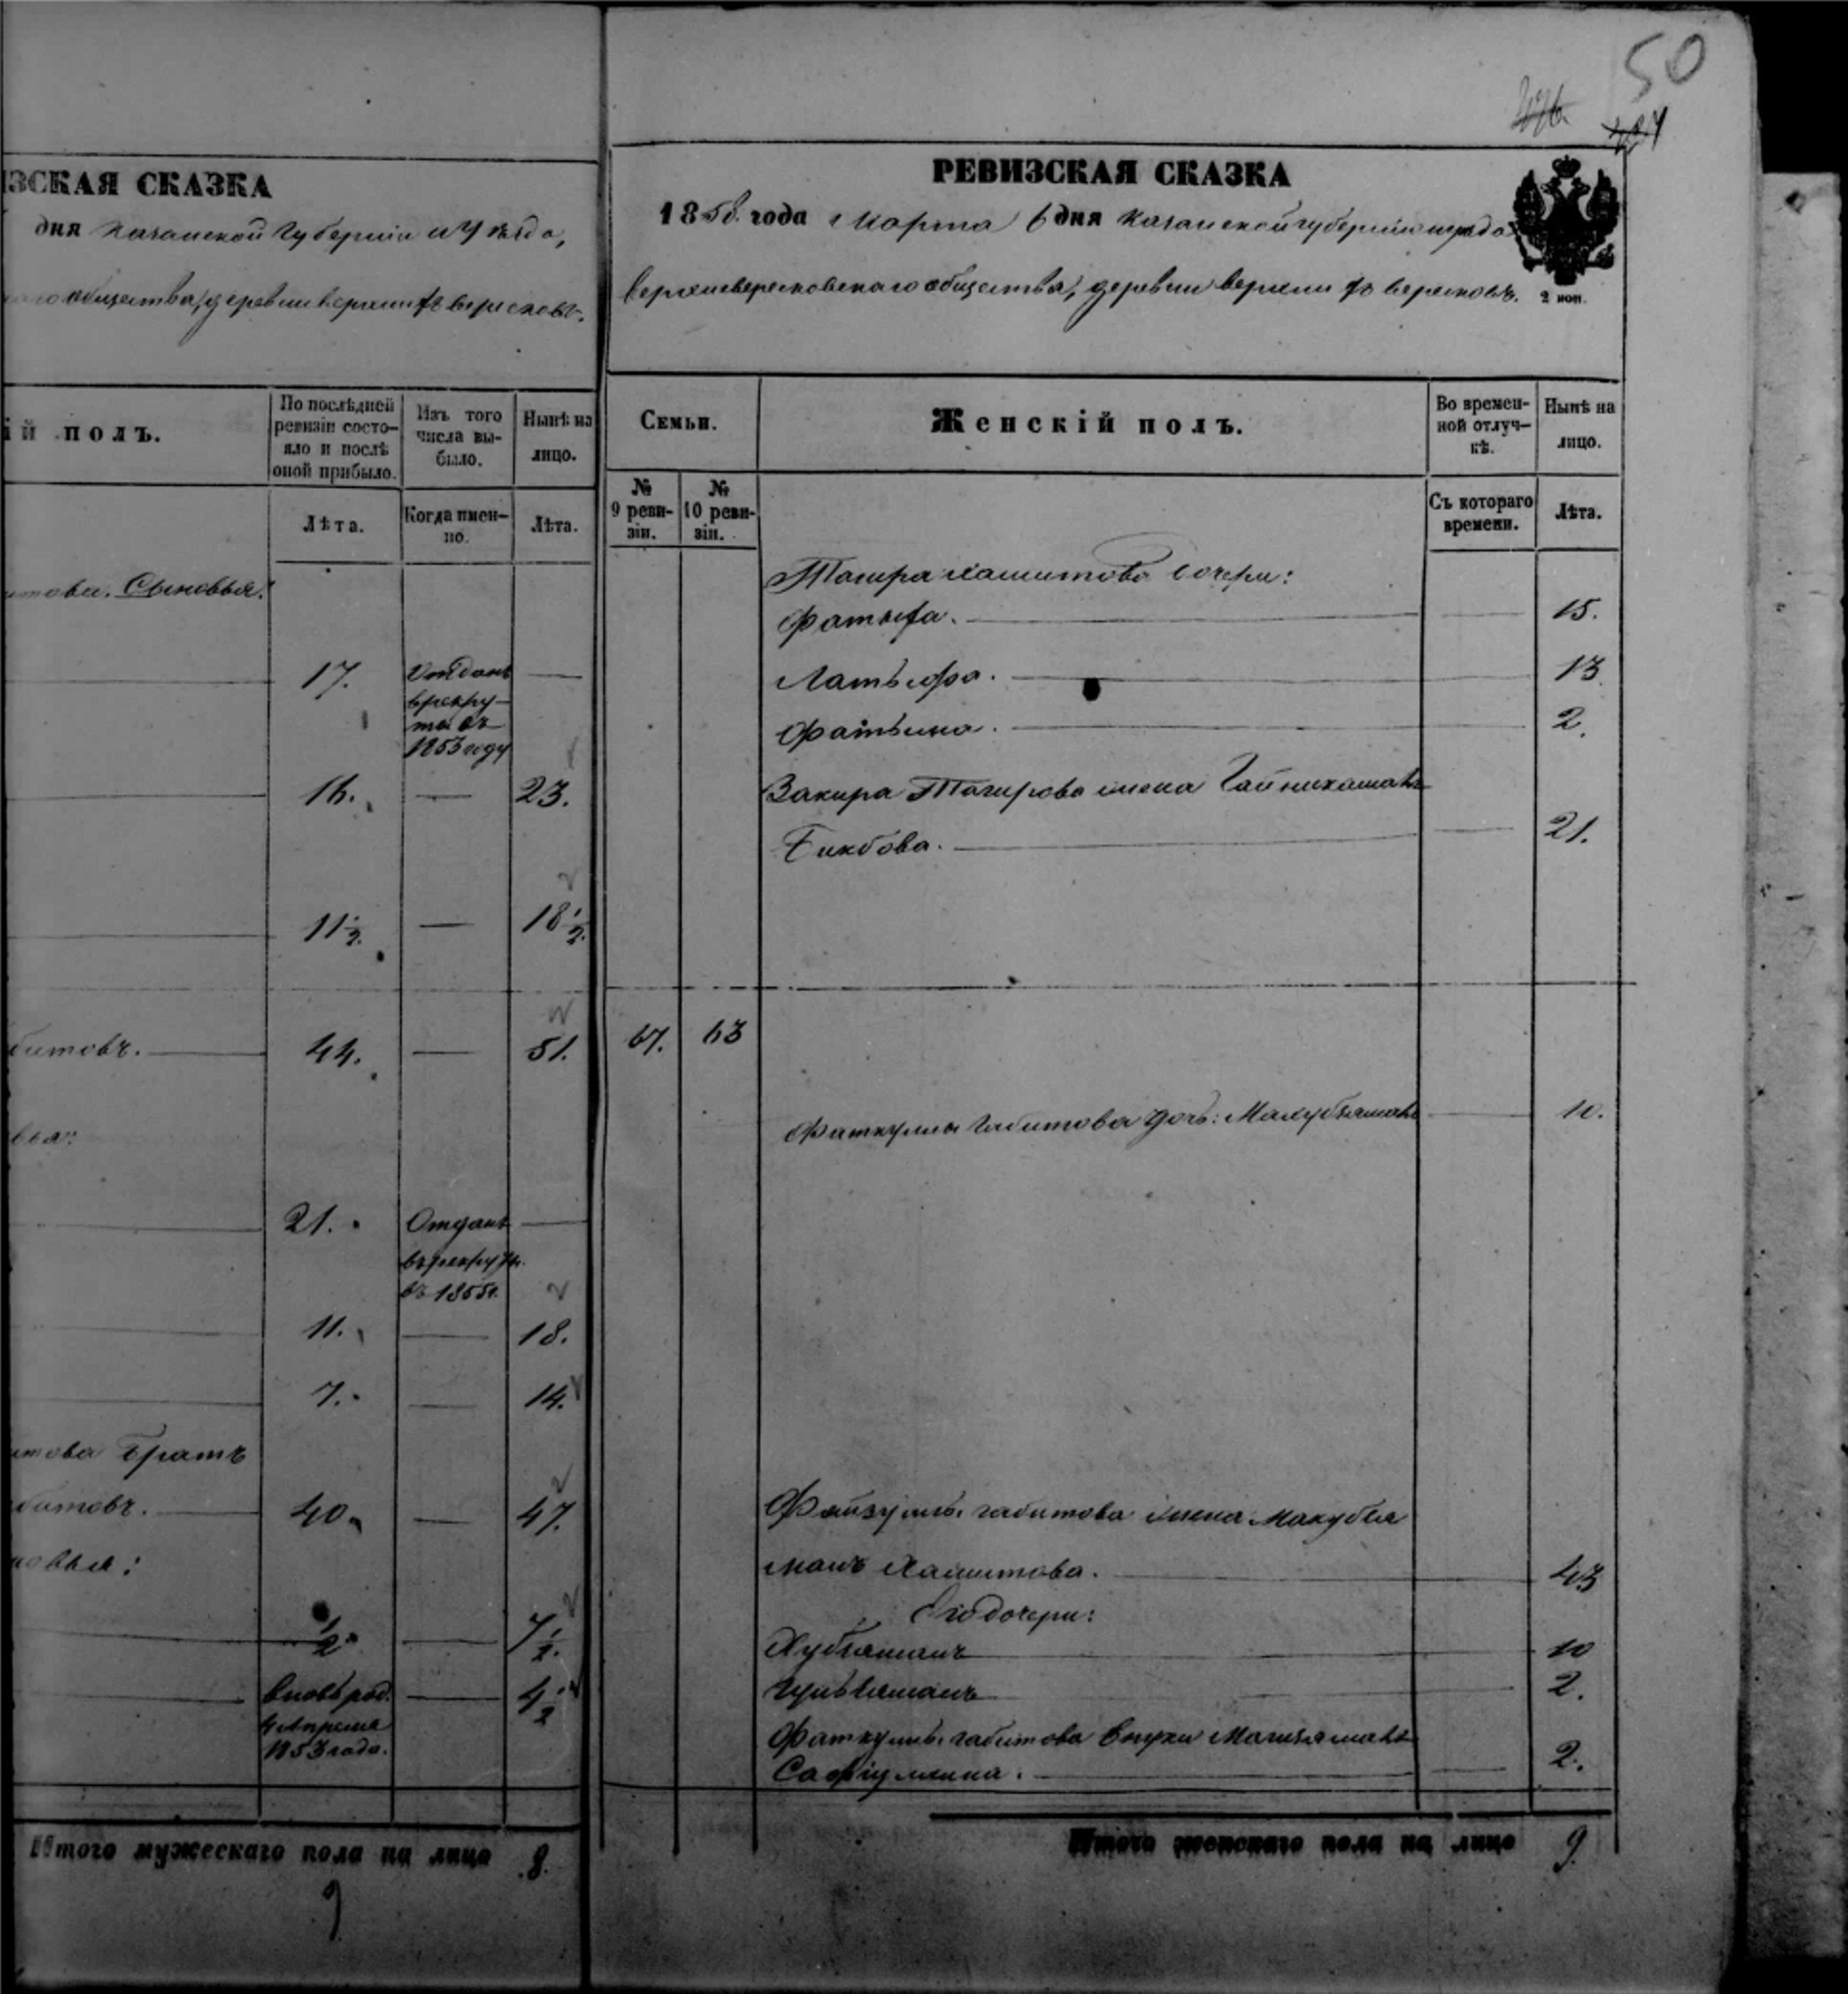 50
ИЗСКАЯ СКАЗКА
дня Казанской Губернии и Уѣзда,
общества, деревни верхнихъ вересковъ.
ій полъ.
По послѣдней ревизіи состояло и послѣ оной прибыло.
Изъ того числа выбыло.
Нынѣ на лицо.
Лѣта.
Когда именно.
Лѣта.
итова. Сыновья:
17. Отданъ — 
в рекру-
ты въ
1853 году
16. — 23.
11 1/2. — 18 1/2.
битовъ. 44. — 51.
вья:
21. Отданъ —
въ рекруты.
въ 1855г.
11. — 18.
7. — 14.
итова Братъ
битовъ. 40. — 47.
новья:
1/2. — 7 1/2.
вновь род. — 4 1/2
4 Апреля
1853 года.
Итого мужескаго пола на лицо 8.
9
РЕВИЗСКАЯ СКАЗКА
1858. года Марта 6 дня Казанской губерніи и уезда
Верхневересковскаго общества, деревни верхнихъ вересковъ.
2 коп.
Семьи.
Женскій полъ.
Во временной отлучкѣ.
Нынѣ на лицо.
№ 9 ревизіи.
№ 10 ревизіи.
Съ котораго времени.
Лѣта.
Тагира Хамитова дочери:
Фатыфа. — 15.
Латыфа. — 13
Фатьима. — 2.
Закира Тагирова жена
Бикбова. — 21.
67. 63
Фаткуллы Габитова дочь: Махубзяманъ — 10.
Файзуллы Габитова жена Махубзя
манъ Хамитова. — 43
Его дочери:
Хубзяманъ — 10
2.
Фаткуллы Габитова внуки
Сафіуллина. — 2.
Итого женскаго пола на лицо 9.